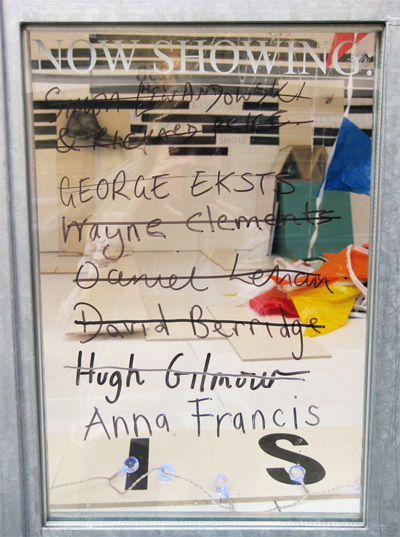 NOW SHOWING.
Simon Lewandowski
& RICHARD PRICE.
GEORGE EKSTS
Wayne Clements
Daniel Lehan
David Berridge
Hugh Gilmour
Anna Francis
I S